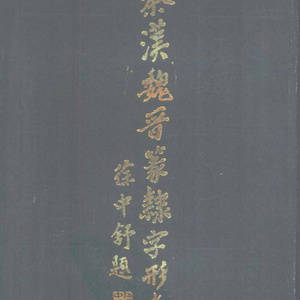 秦漢魏晉篆隸字形表
徐中舒題